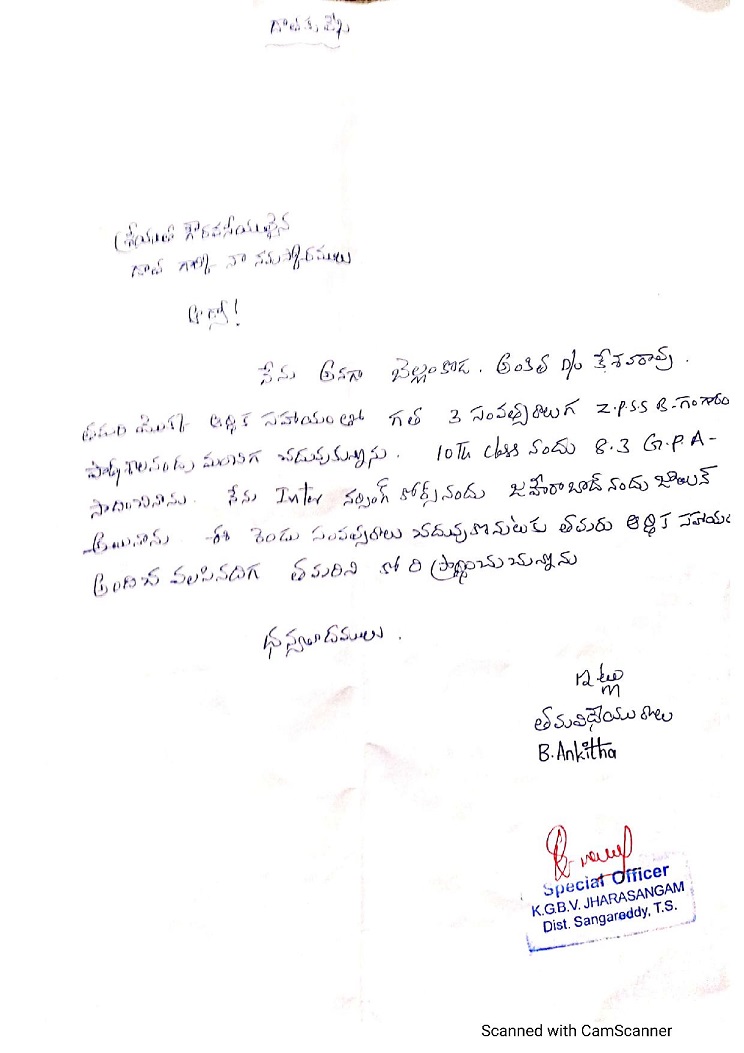 శ్రీయుత గౌరవనీయులైన
గారికి నా నమస్కారములు
ఆర్యా!
నేను అనగా బెల్లంకొడ. అంకిత D/o కేశవరావు.
తమరి యొక్క ఆర్థిక సహాయంతో గత 3 సంవత్సరాలుగ Z.P.S.S B-గంగారం
పాఠశాలనందు మంచిగ చదువుకున్నాను. 10Th class నందు 8.3 G.P.A-
సాదించినాను. నేను Inter నర్సింగ్ కోర్స్‌నందు జహీరాబాద్ నందు జాయిన్
అయినాను ఈ రెండు సంవత్సరాలు చదువుకొనుటకు తమరు ఆర్థిక సహాయం
అందించ వలసినదిగ తమరిని కోరి ప్రార్థించుచున్నాను
ధన్యవాదములు.
ఇట్లు
తమవిధేయురాలు
B.Ankitha
Special Officer
K.G.B.V. JHARASANGAM
Dist. Sangareddy, T.S.
Scanned with CamScanner